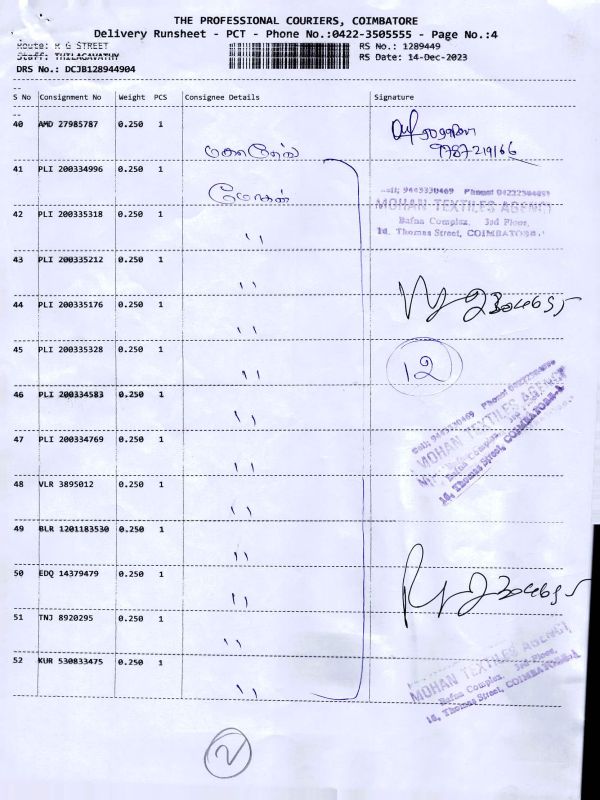 THE PROFESSIONAL COURIERS, COIMBATORE
Delivery Runsheet - PCT - Phone No.:0422-3505555 - Page No.:4
Route: M G STREET
RS No.: 1289449
Staff: THILAGAVATHY
RS Date: 14-Dec-2023
DRS No.: DCJB128944904
S No Consignment No Weight PCS Consignee Details Signature
40 AMD 27985787 0.250 1
9787219166
41 PLI 200334996 0.250 1
மோகன்
Cell: 9443330469 Phone: 04222504699
MOHAN TEXTILES AGENCY
Bafna Complex, 3rd Floor,
18, Thomas Street, COIMBATORE-1
42 PLI 200335318 0.250 1
"
43 PLI 200335212 0.250 1
"
44 PLI 200335176 0.250 1
"
2304695
45 PLI 200335328 0.250 1
"
12
46 PLI 200334583 0.250 1
"
47 PLI 200334769 0.250 1
"
MOHAN TEXTILES AGENCY
Bafna Complex, 3rd Floor,
18, Thomas Street, COIMBATORE-1
48 VLR 3895012 0.250 1
"
49 BLR 1201183530 0.250 1
"
50 EDQ 14379479 0.250 1
"
2304695
51 TNJ 8920295 0.250 1
"
52 KUR 530833475 0.250 1
"
MOHAN TEXTILES AGENCY
Bafna Complex, 3rd Floor,
18, Thomas Street, COIMBATORE-1
2